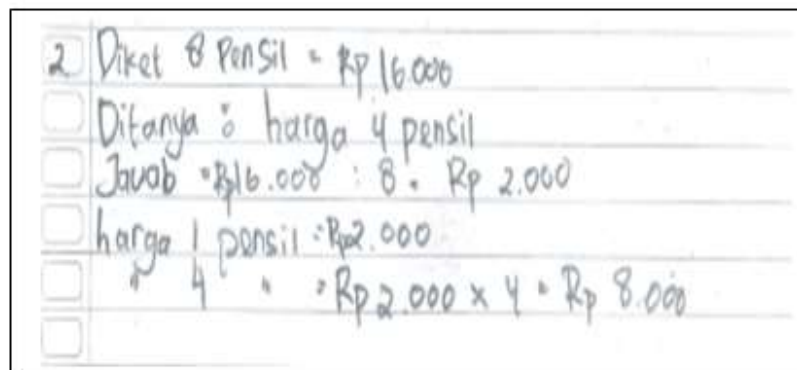 2 Diket 8 Pensil = Rp 16.000
Ditanya : harga 4 pensil
Jawab = Rp16.000 : 8 = Rp 2.000
harga 1 pensil = Rp2.000
" 4 " = Rp 2.000 x 4 = Rp 8.000